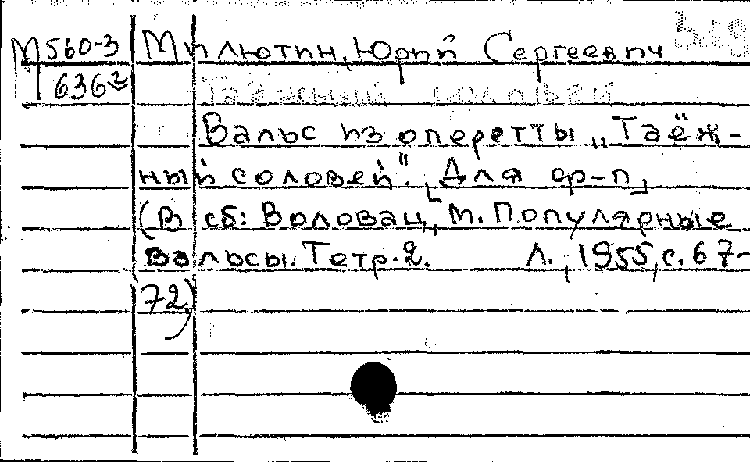 М 560-3 Милютин, Юрий Сергеевич
6362
Таёжный соловей
Вальс из оперетты „Таёж-
ный соловей". [Для ф-п]
(В сб: Воловац, М. Популярные
вальсы. Тетр. 2. Л., 1955, с. 67-
72)